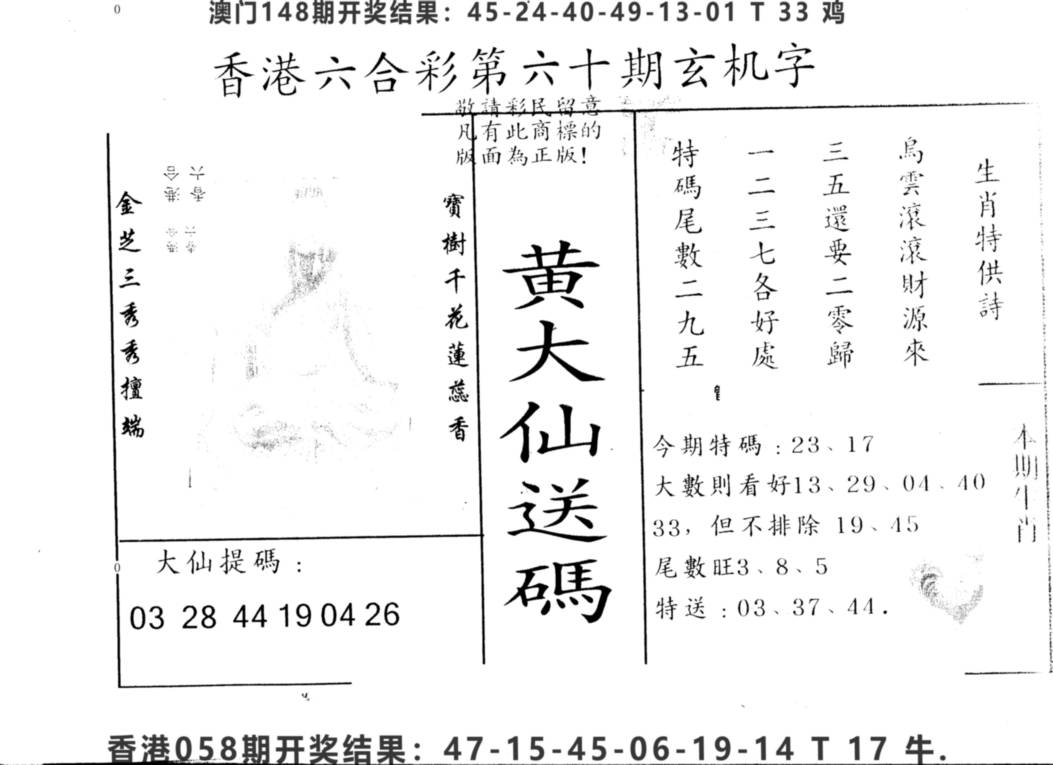 澳门148期开奖结果：45-24-40-49-13-01 T 33 鸡
香港六合彩第六十期玄机字
敬請彩民留意
凡有此商標的
版面為正版!
生肖特供詩
烏雲滾滾財源來
三五還要二零歸
一二三七各好處
特碼尾數二九五
寶樹千花蓮蕊香
金芝三秀秀擅端
黄大仙送碼
本期生肖
今期特碼：23、17
大數則看好13、29、04、40
33，但不排除 19、45
尾數旺3、8、5
特送：03、37、44.
大仙提碼：
03 28 44 19 04 26
香港058期开奖结果：47-15-45-06-19-14 T 17 牛.